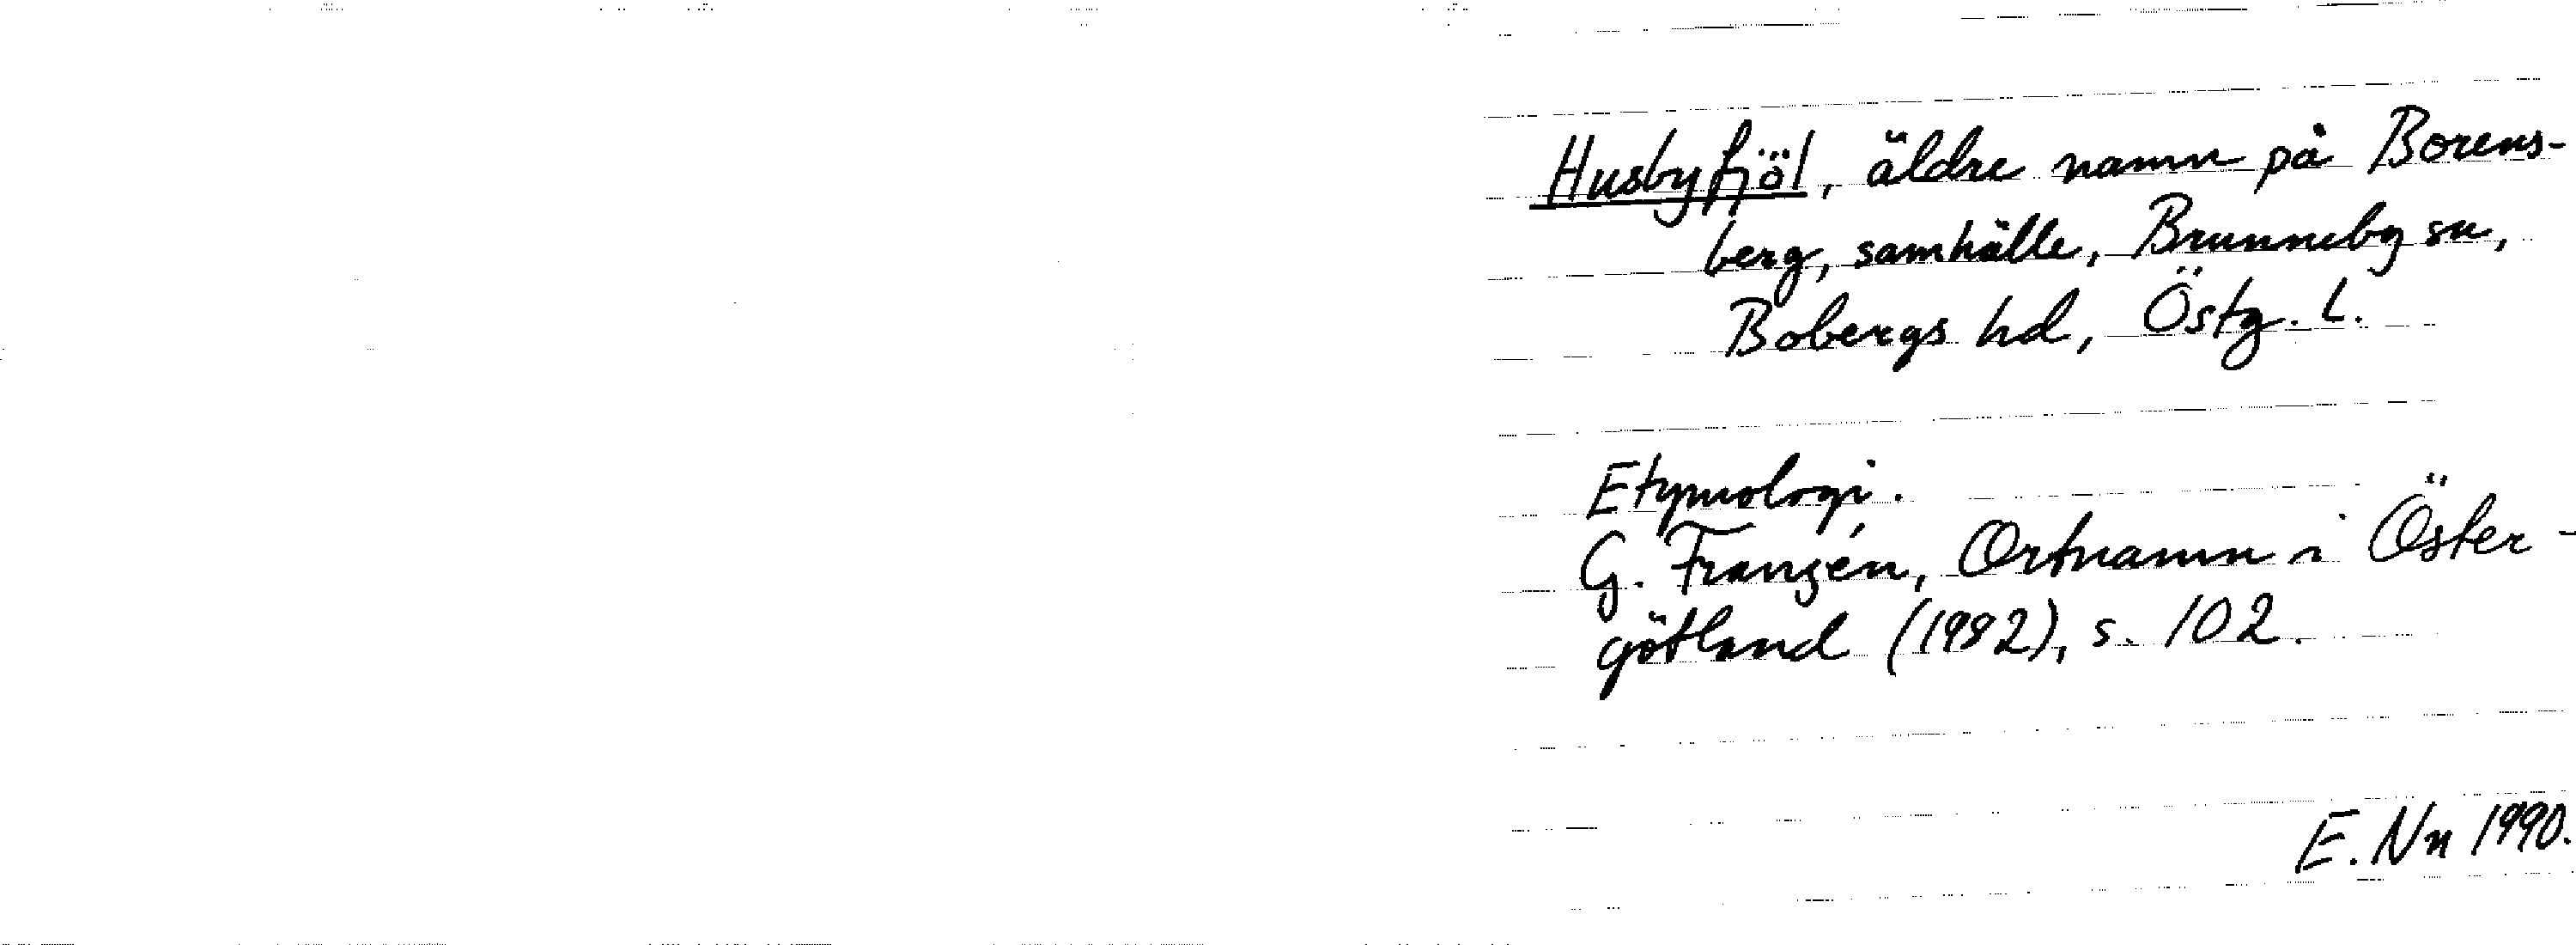 Husbyfjöl, äldre namn på Borens-
berg, samhälle, Brunneby sn,
Bobergs hd, Östg. l.
Etymologi.
G. Franzén, Ortnamn i Öster-
götland (1982), s. 102.
E. Nn 1990.